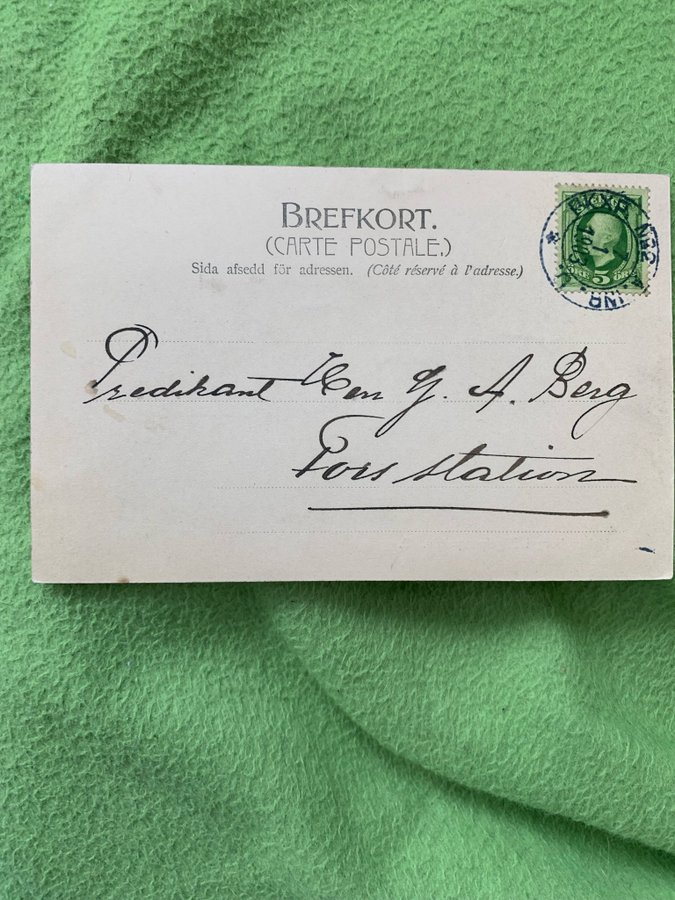 BREFKORT.
(CARTE POSTALE.)
Sida afsedd för adressen. (Côté réservé à l'adresse.)
PKXP Nº2
1903
5 ÖRE
Predikant Herr G. A. Berg
Fors station